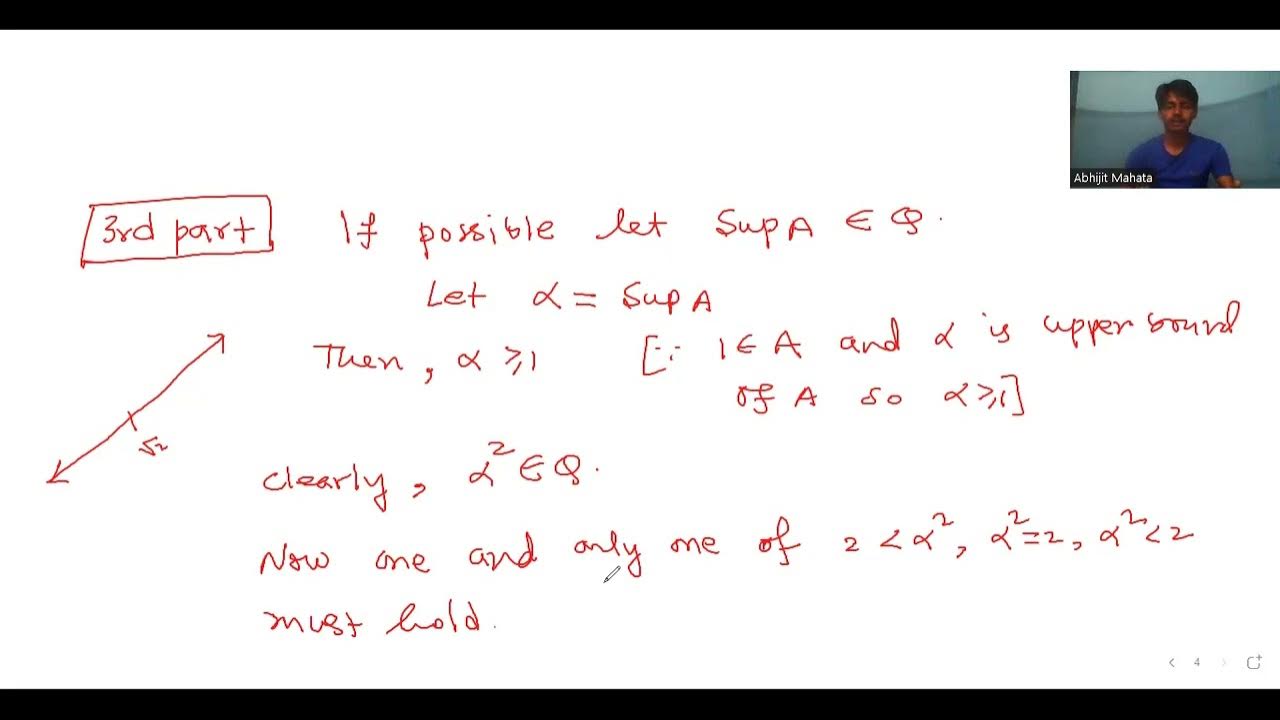 Abhijit Mahata
3rd part
If possible let Sup A ∈ Q.
Let α = Sup A
Then, α ≥ 1 [∵ 1 ∈ A and α is upper bound
of A so α ≥ 1]
√2
Clearly, α² ∈ Q.
Now one and only one of 2 < α², α² = 2, α² < 2
must hold.
4